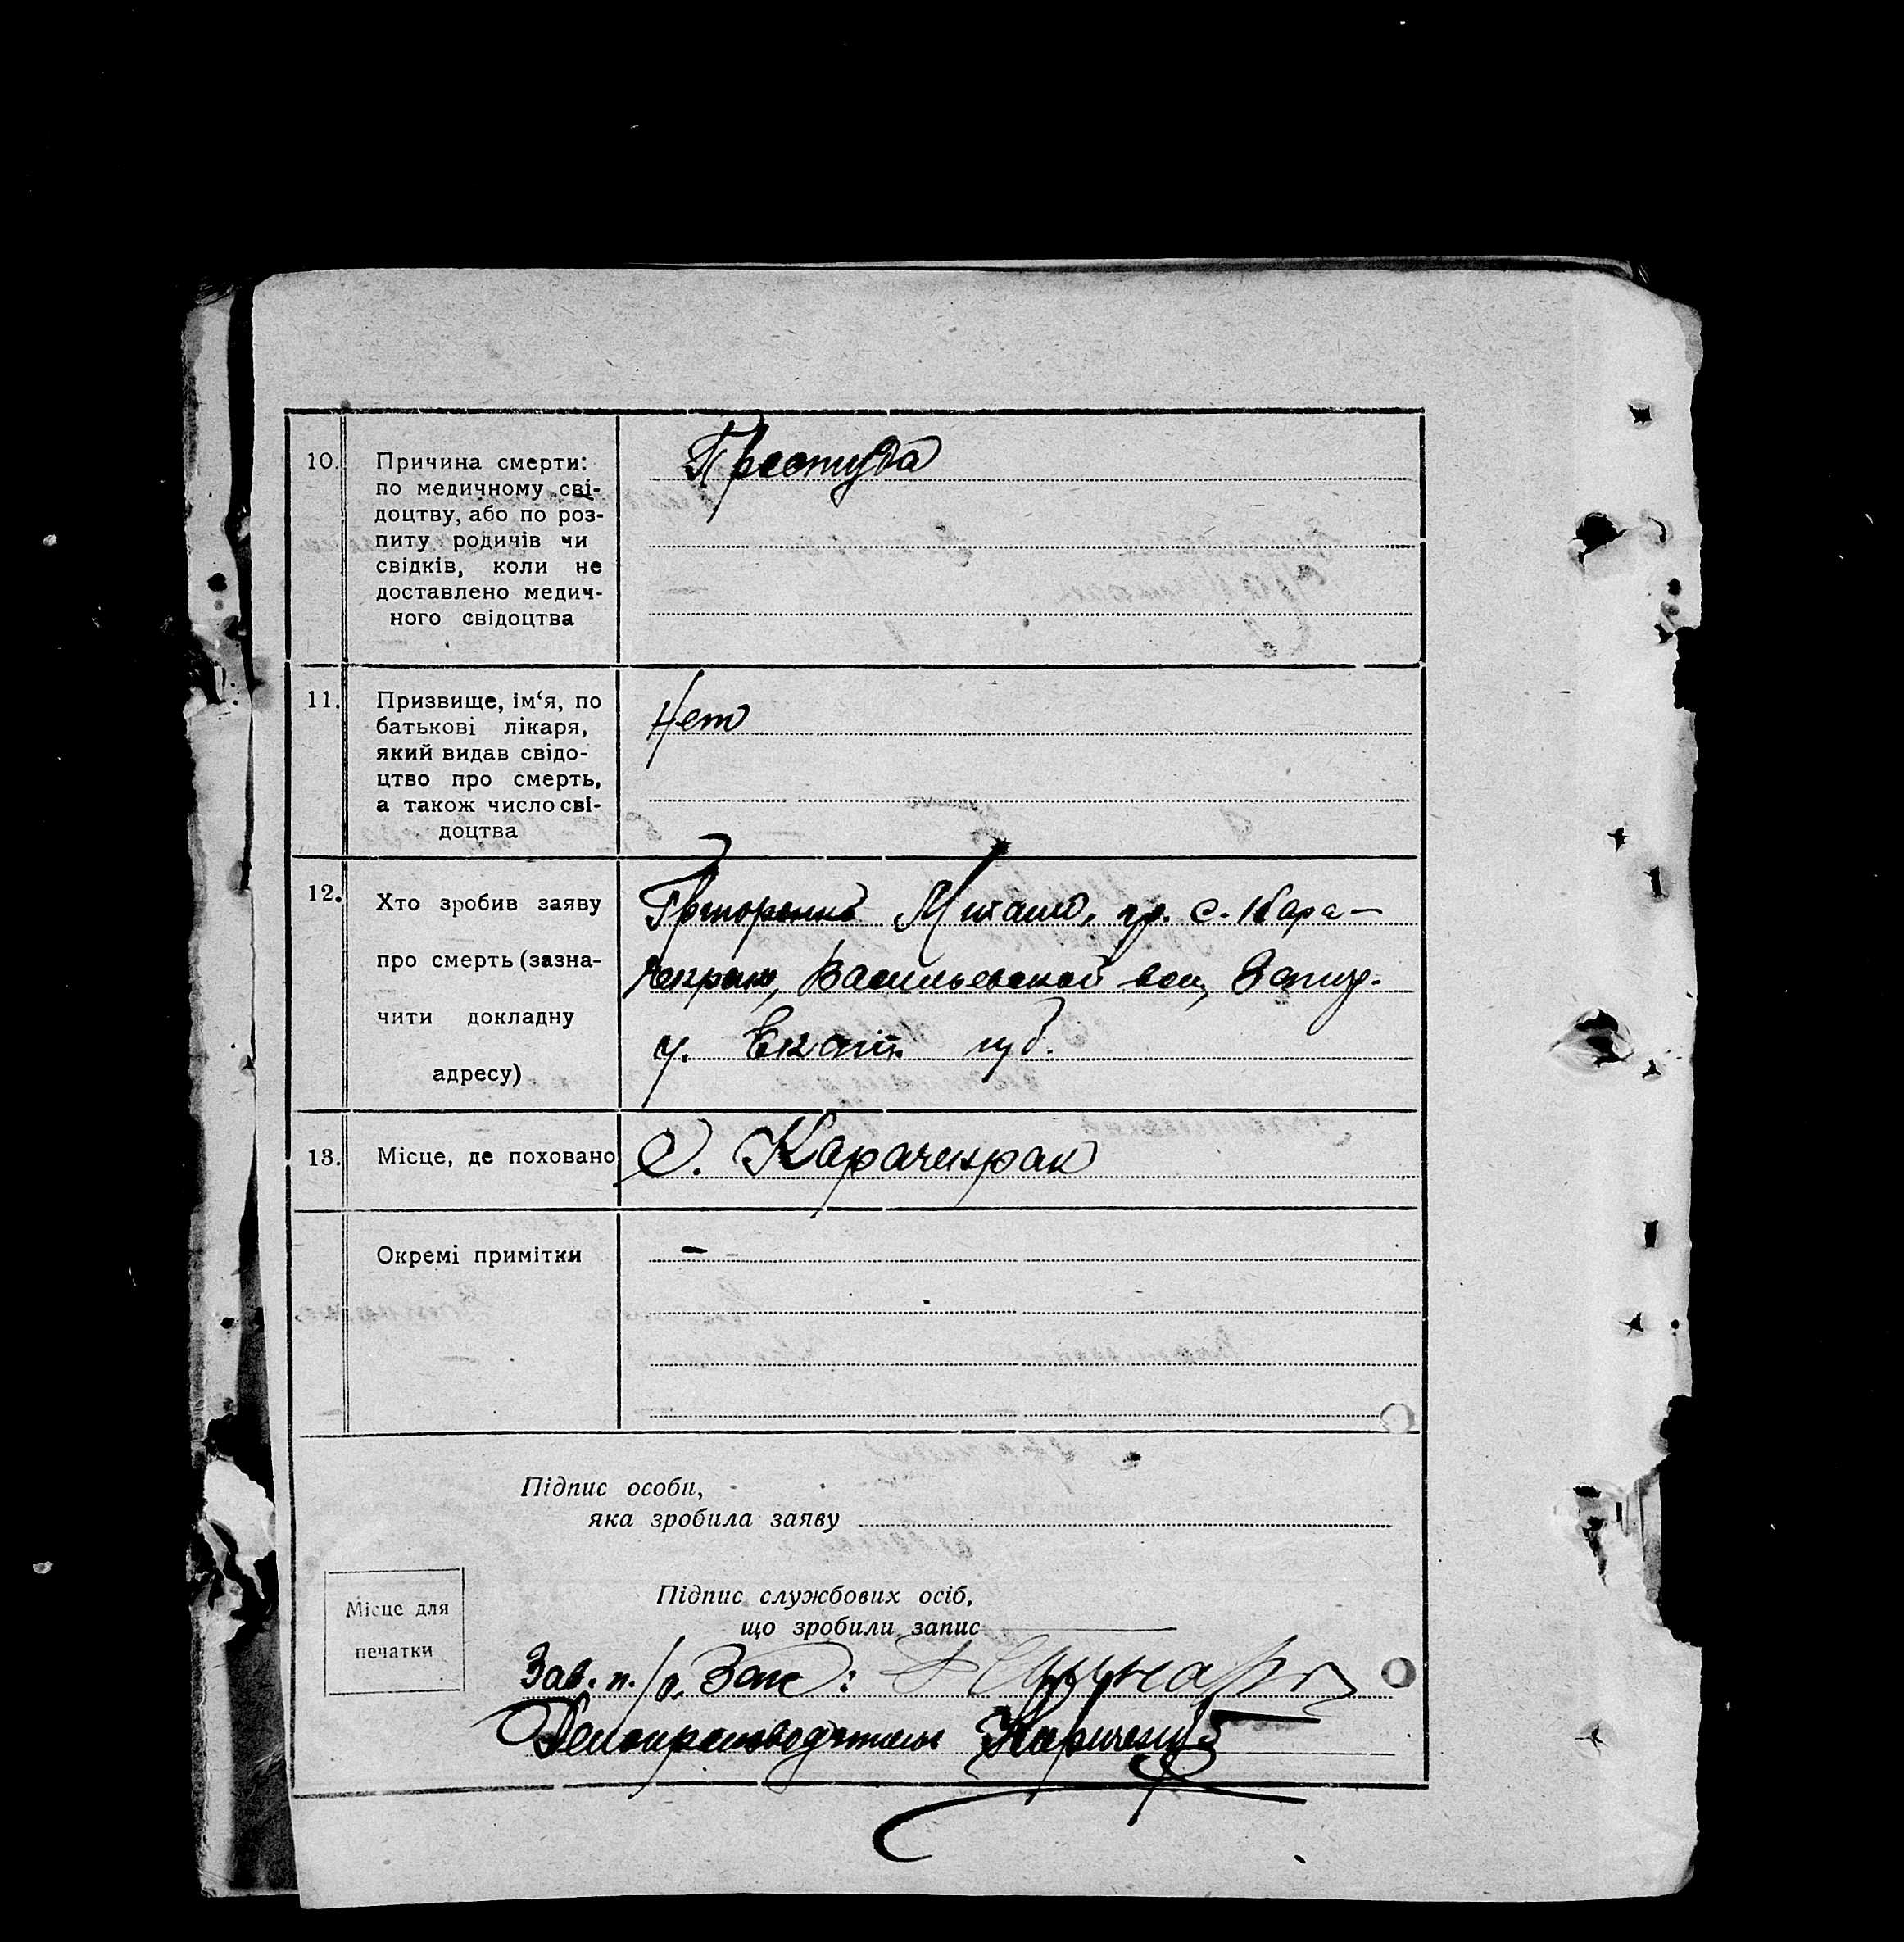 10. Причина смерти:
по медичному сві-
доцтву, або по роз-
питу родичів чи
свідків, коли не
доставлено медич-
ного свідоцтва
Простуда
11. Призвище, ім‘я, по
батькові лікаря,
який видав свідо-
цтво про смерть,
а також число сві-
доцтва
Нет
12. Хто зробив заяву
про смерть (зазна-
чити докладну
адресу)
Михаил, гр. с. Кара-
чекрак, Васильевской вол,
у. Екат. губ.
13. Місце, де поховано
С. Карачекрак
Окремі примітки
–
Підпис особи,
яка зробила заяву
Підпис службових осіб,
що зробили запис
Місце для
печатки
Зав. п./о. Загс:
Делопроизводитель